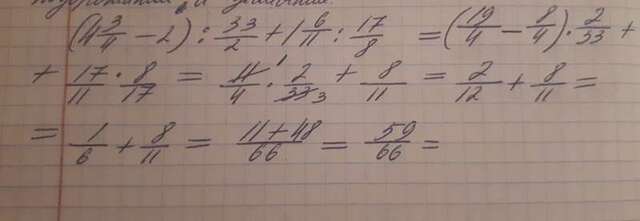 (4 3/4 − 2) : 33/2 + 1 6/11 : 17/8 = (19/4 − 8/4) · 2/33 +
+ 17/11 · 8/17 = 11/4 · 2/33 3 + 8/11 = 2/12 + 8/11 =
= 1/6 + 8/11 = 11+48/66 = 59/66 =